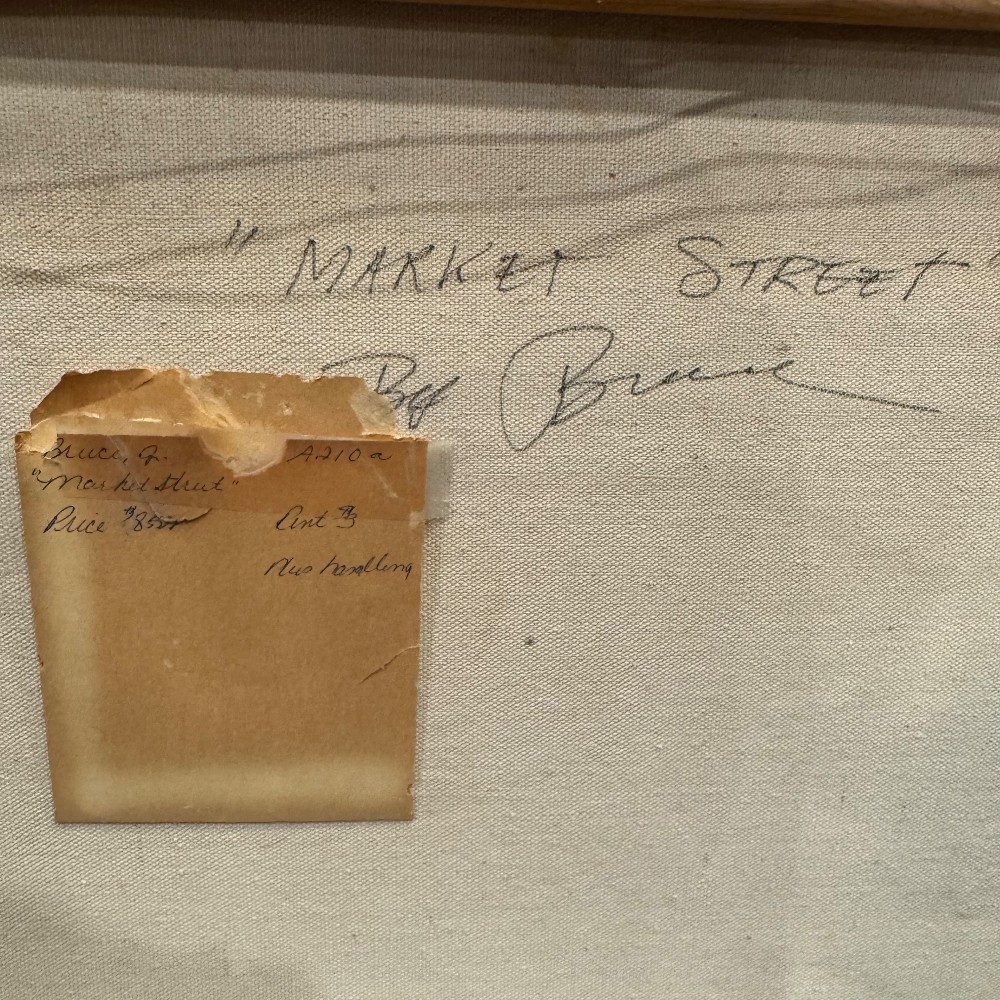 "MARKET STREET"
By Bruce
Bruce, J. A210a
"Market Street"
Price $85 #3
Plus handling